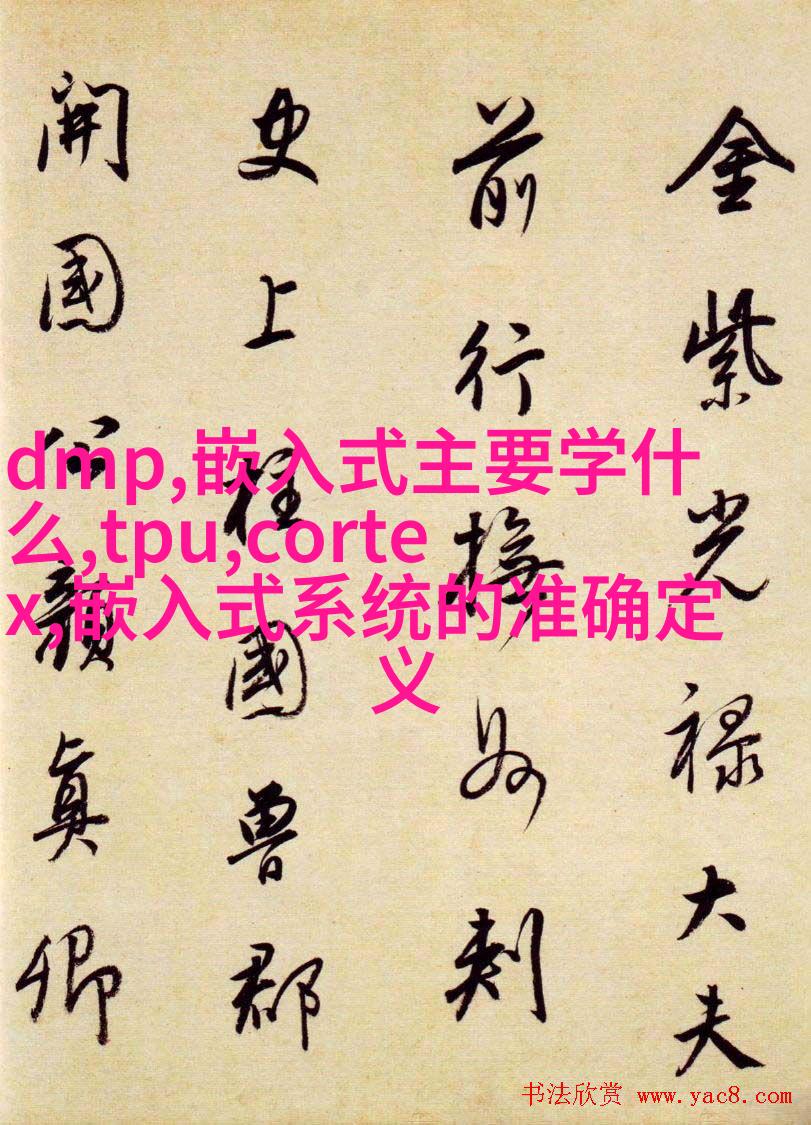 金紫光禄大夫
前行撫州刺
史上柱國魯郡
開國公顏眞卿
dmp,嵌入式主要学什
么,tpu,corte
x,嵌入式系统的准确定
义
书法欣赏 www.yac8.com